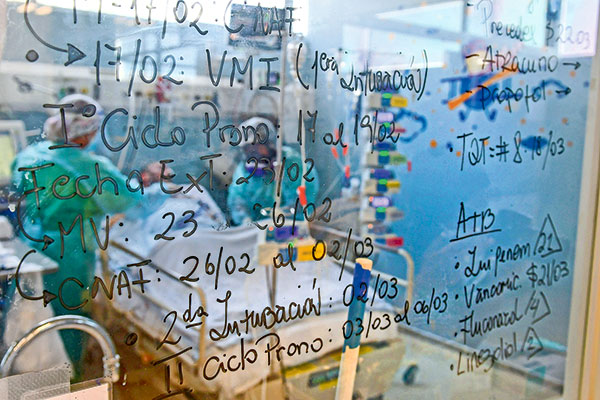 11-17/02: CNAF
17/02: VMI (1era Intubación)
I° Ciclo Prono: 17 al 19/02
Fecha Ext: 23/02
MV: 23 26/02
CNAF: 26/02 al 02/03
2da Intubación: 02/03
II Ciclo Prono: 03/03 al 06/03
Precedex
- Atracurio →
- Propofol →
TQT = #8 16/03
ATB
• Imipenem
• Vancomic. 21/03
• Fluconazol 4
• Linezolid 2